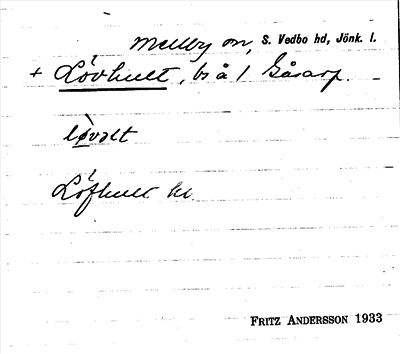 Mellby sn, S. Vedbo hd, Jönk. l.
+ Lövhult, bs å 1 Gåvarp.
lø̀vəlt
Löfhult hl
FRITZ ANDERSSON 1933